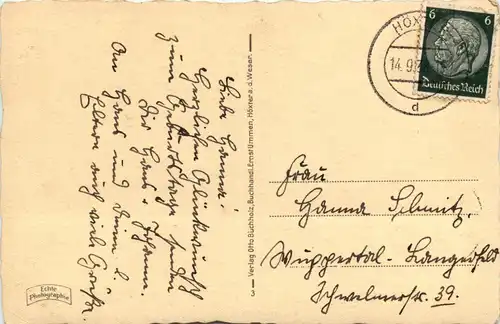 Liebe Hanna!
Herzlichen Glückwunsch
zum Geburtstage senden
Dir Hans u.
An Hans und Deine l.
Eltern auch viele Grüße.
Echte
Photographie
3 — Verlag Otto Buchholz, Buchhandl. Ernst Ummen, Höxter a. d. Weser
HÖX
14.9
d
6 6
Deutsches Reich
Frau
Hanna Schmitz,
Wuppertal-Langerfeld
Schwelmerstr. 39.